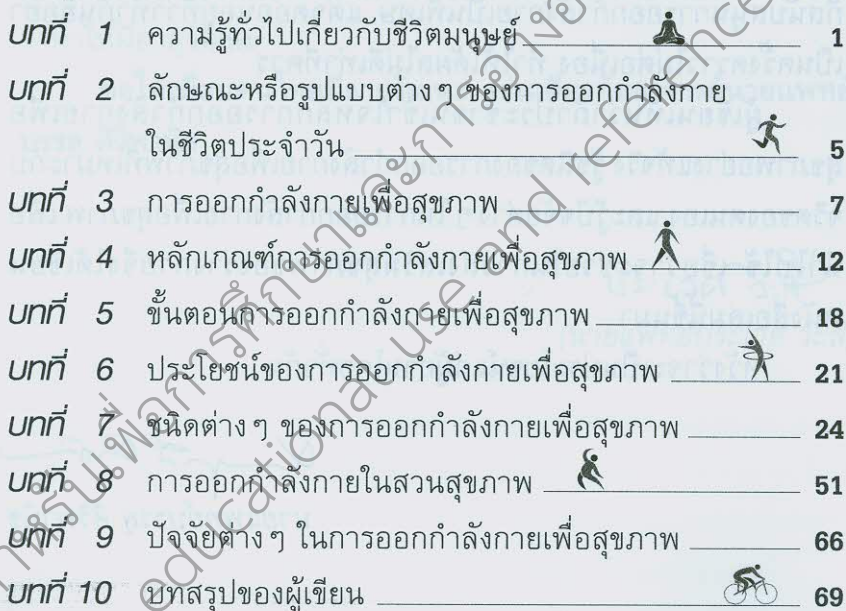 บทที่ 1 ความรู้ทั่วไปเกี่ยวกับชีวิตมนุษย์ 1
บทที่ 2 ลักษณะหรือรูปแบบต่าง ๆ ของการออกกำลังกาย
ในชีวิตประจำวัน 5
บทที่ 3 การออกกำลังกายเพื่อสุขภาพ 7
บทที่ 4 หลักเกณฑ์การออกกำลังกายเพื่อสุขภาพ 12
บทที่ 5 ขั้นตอนการออกกำลังกายเพื่อสุขภาพ 18
บทที่ 6 ประโยชน์ของการออกกำลังกายเพื่อสุขภาพ 21
บทที่ 7 ชนิดต่าง ๆ ของการออกกำลังกายเพื่อสุขภาพ 24
บทที่ 8 การออกกำลังกายในสวนสุขภาพ 51
บทที่ 9 ปัจจัยต่าง ๆ ในการออกกำลังกายเพื่อสุขภาพ 66
บทที่ 10 บทสรุปของผู้เขียน 69
เพื่อการศึกษาและการอ้างอิง
educational use and reference